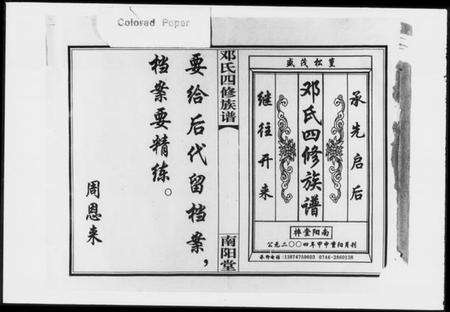 Colored Paper
盛茂松茧
承先启后
邓氏四修族谱
继往开来
南阳堂梓
公元二〇〇四年甲申重阳月刊
承印电话：13874759603 0744-2860138
邓氏四修族谱
南阳堂
要给后代留档案，
档案要精练。
周恩来